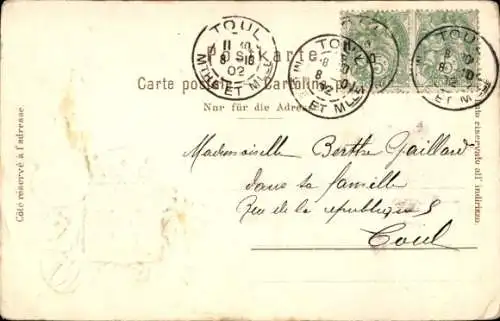 TOUL
11 10
8 -10
02
MTHE ET MLLE
Postkarte
Carte postale Cartolina
Nur für die Adresse
TOUL
8
8
02
ET MLLE
TOUL
8
02
ET MLLE
Côté réservé à l'adresse
riservato all' indirizzo
Mademoiselle Berthe Gaillard
dans sa famille
Rue de la republique 5
Toul